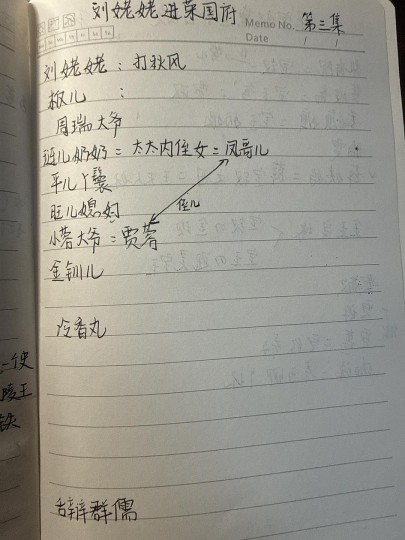 刘姥姥进荣国府
Memo No. 第三集
Date / /
刘姥姥：打秋风
板儿：
周瑞大爷
琏儿奶奶 = 太太内侄女 = 凤哥儿
平儿丫鬟
旺儿媳妇
侄儿
小蓉大爷 = 贾蓉
金钏儿
冷香丸
一个史
陵王
铁
舌辩群儒